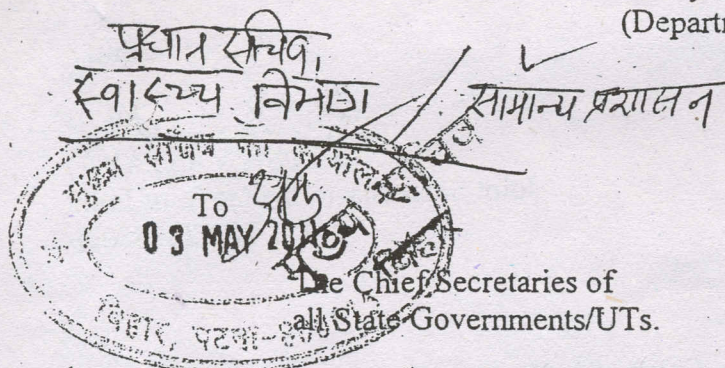 (Departm
प्रधान सचिव,
स्वास्थ्य विभाग
सामान्य प्रशासन
मुख्य सचिव का कार्यालय
To
03 MAY
The Chief Secretaries of
all State Governments/UTs.
बिहार, पटना-